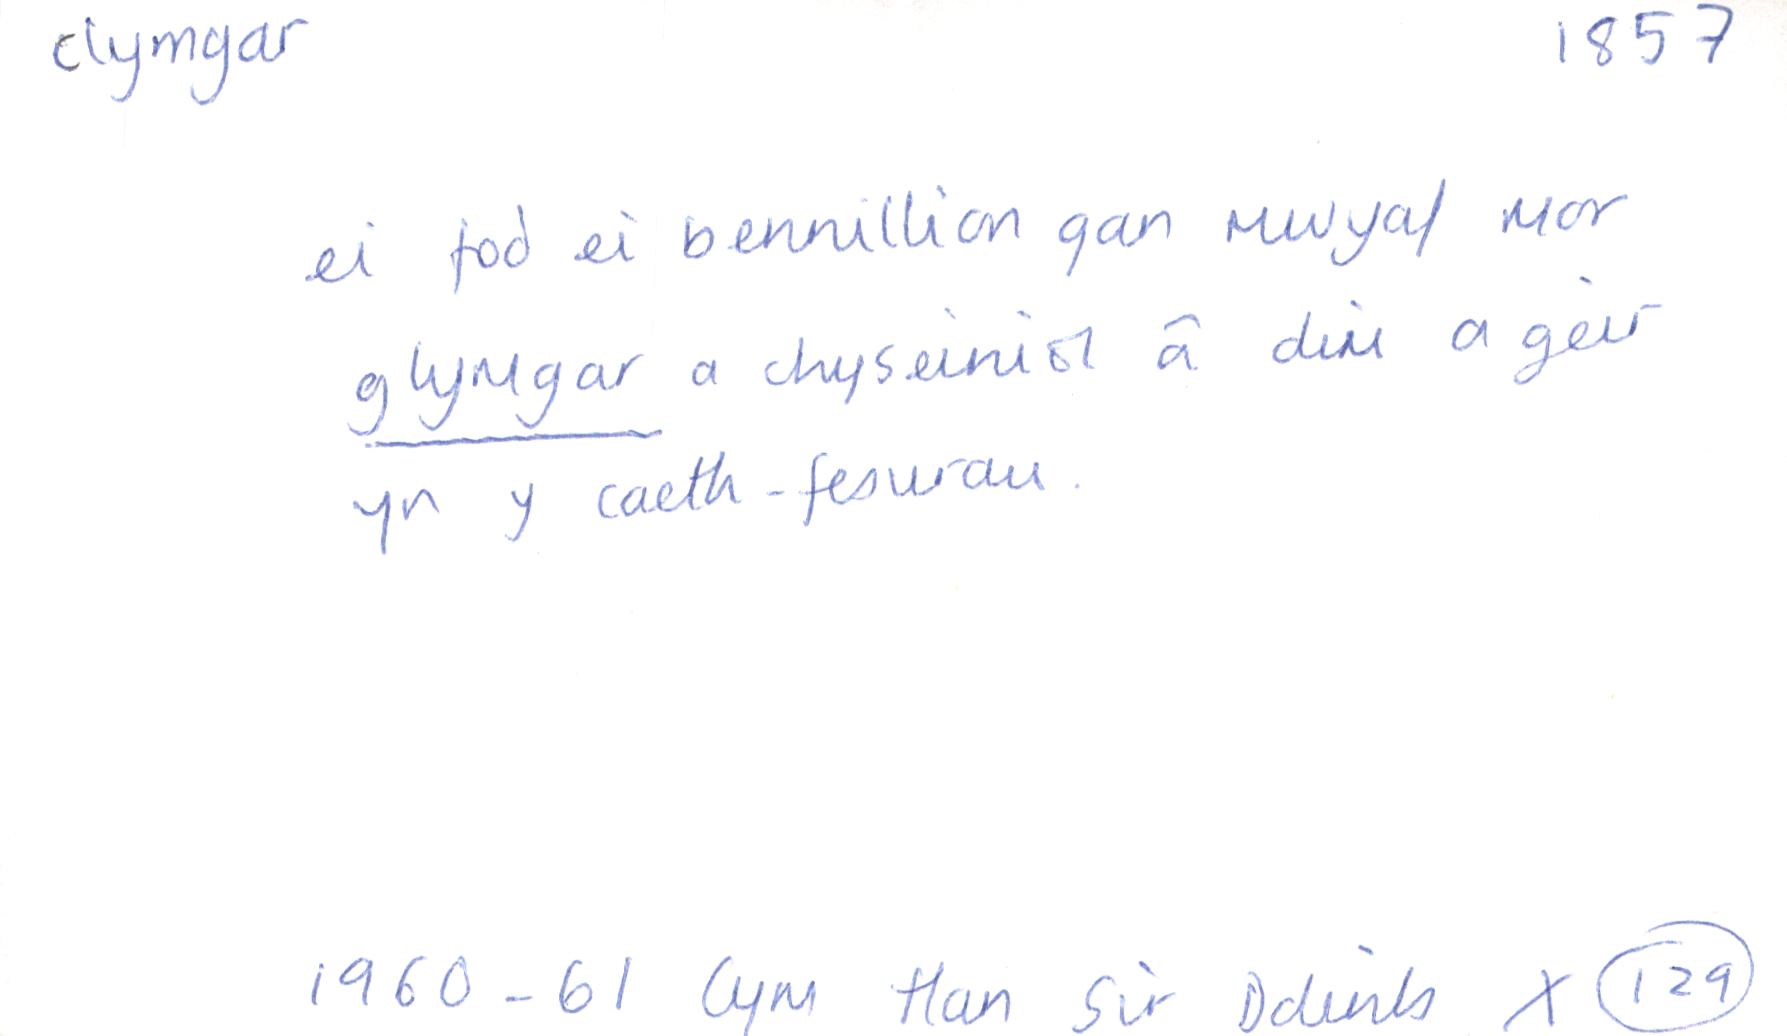 clymgar 1857
ei fod ei bennillion gan mwyaf mor
glymgar a chyseiniol â dim a geir
yn y caeth-fesurau.
1960-61 Cym Han Sir Ddinb X 129